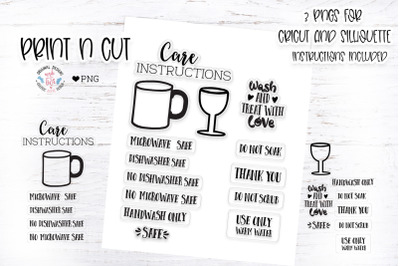 PRINT N CUT
PNG
3 PNGS FOR
CRICUT AND SILHOUETTE
INSTRUCTIONS INCLUDED
Care
INSTRUCTIONS
MICROWAVE SAFE
DISHWASHER SAFE
NO DISHWASHER SAFE
NO MICROWAVE SAFE
Care
INSTRUCTIONS
MICROWAVE SAFE
DISHWASHER SAFE
NO DISHWASHER SAFE
NO MICROWAVE SAFE
HANDWASH ONLY
SAFE
Wash
AND
TREAT WITH
Love
DO NOT SOAK
THANK YOU
DO NOT SCRUB
USE ONLY
WARM WATER
Wash
AND
TREAT WITH
Love
SAFE
HANDWASH ONLY
DO NOT SOAK
THANK YOU
DO NOT SCRUB
USE ONLY
WARM WATER